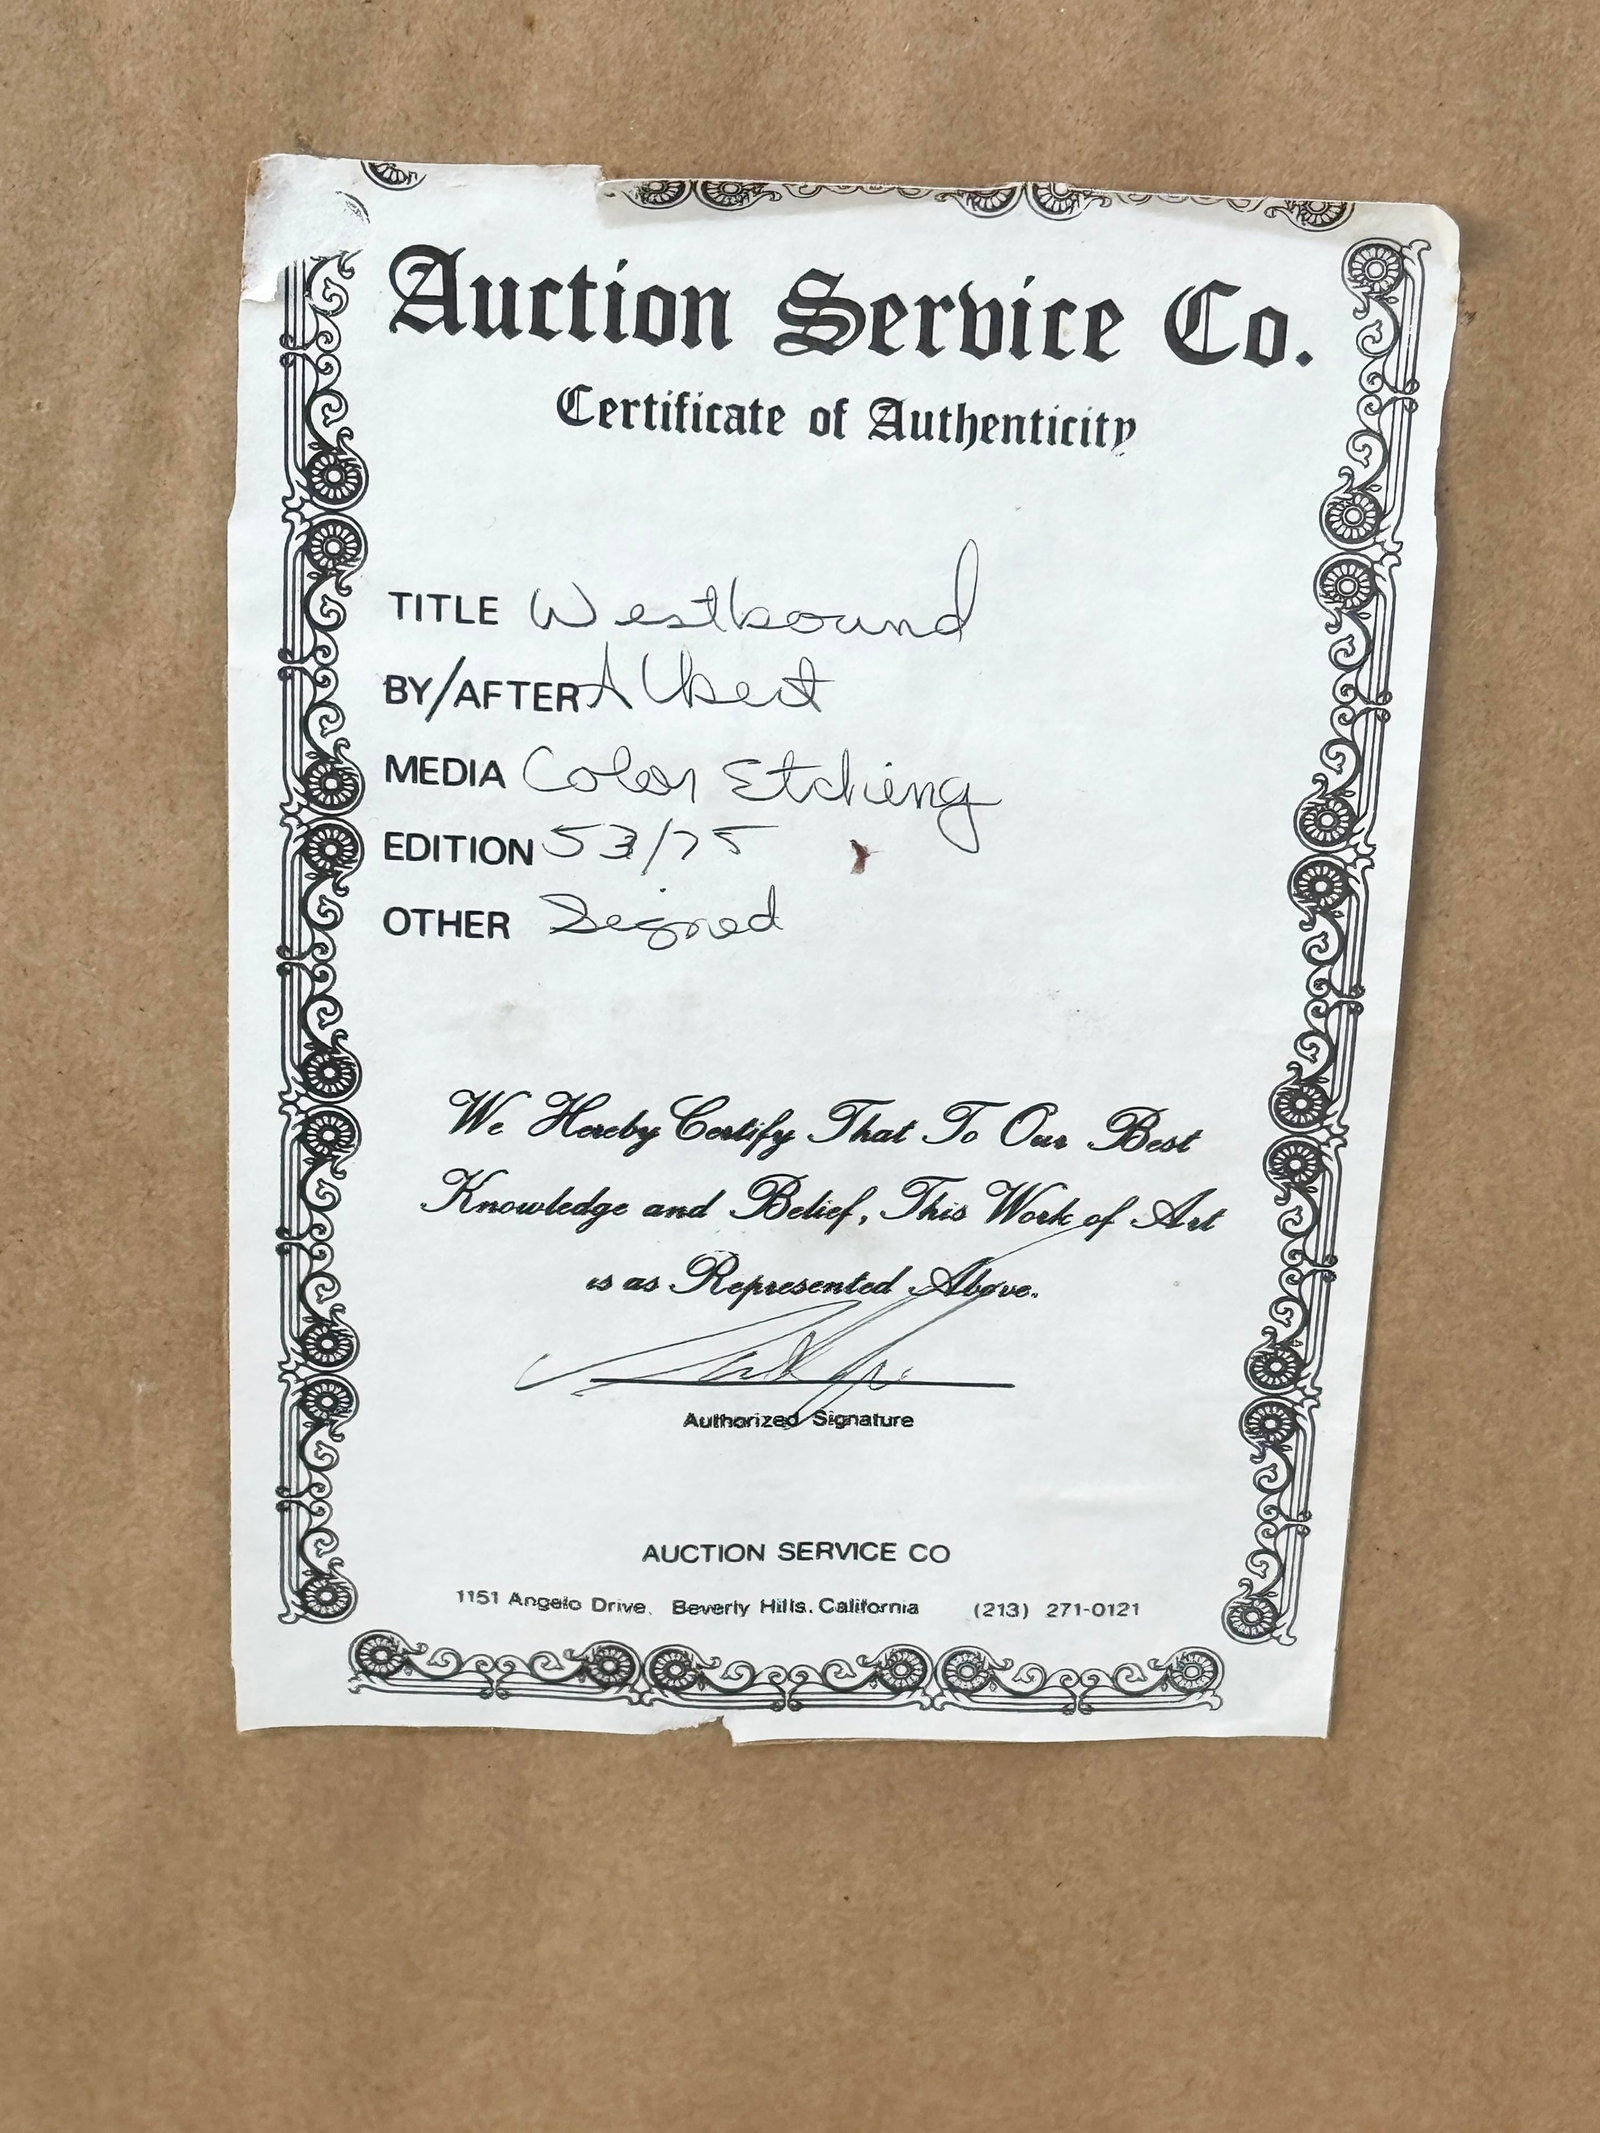 Auction Service Co.
Certificate of Authenticity
TITLE Westbound
BY/AFTER Albert
MEDIA Color Etching
EDITION 53/75
OTHER Signed
We Hereby Certify That To Our Best
Knowledge and Belief, This Work of Art
is as Represented Above.
Authorized Signature
AUCTION SERVICE CO
1151 Angelo Drive, Beverly Hills, California (213) 271-0121